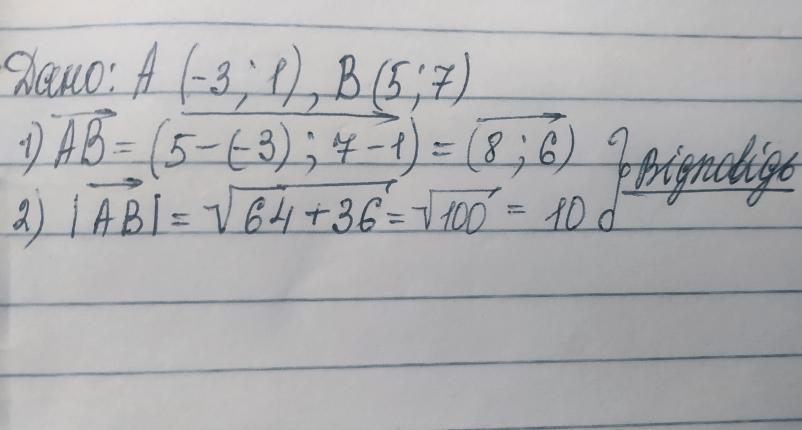 Дано: A (-3; 1), B (5; 7)
1) AB = (5-(-3); 7-1) = (8; 6) } Відповідь
2) |AB| = √64+36 = √100 = 10